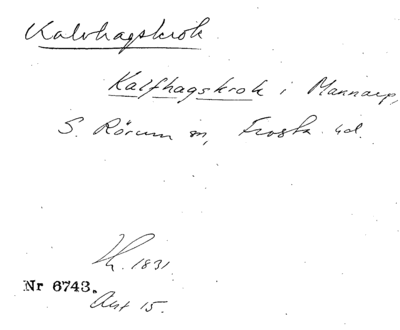 Kalvhagskrok
Kalfhagskrok i Mannarp,
S. Rörum sn, Frosta hd.
Th. 1831.
Nr 6743.
Ant 15.